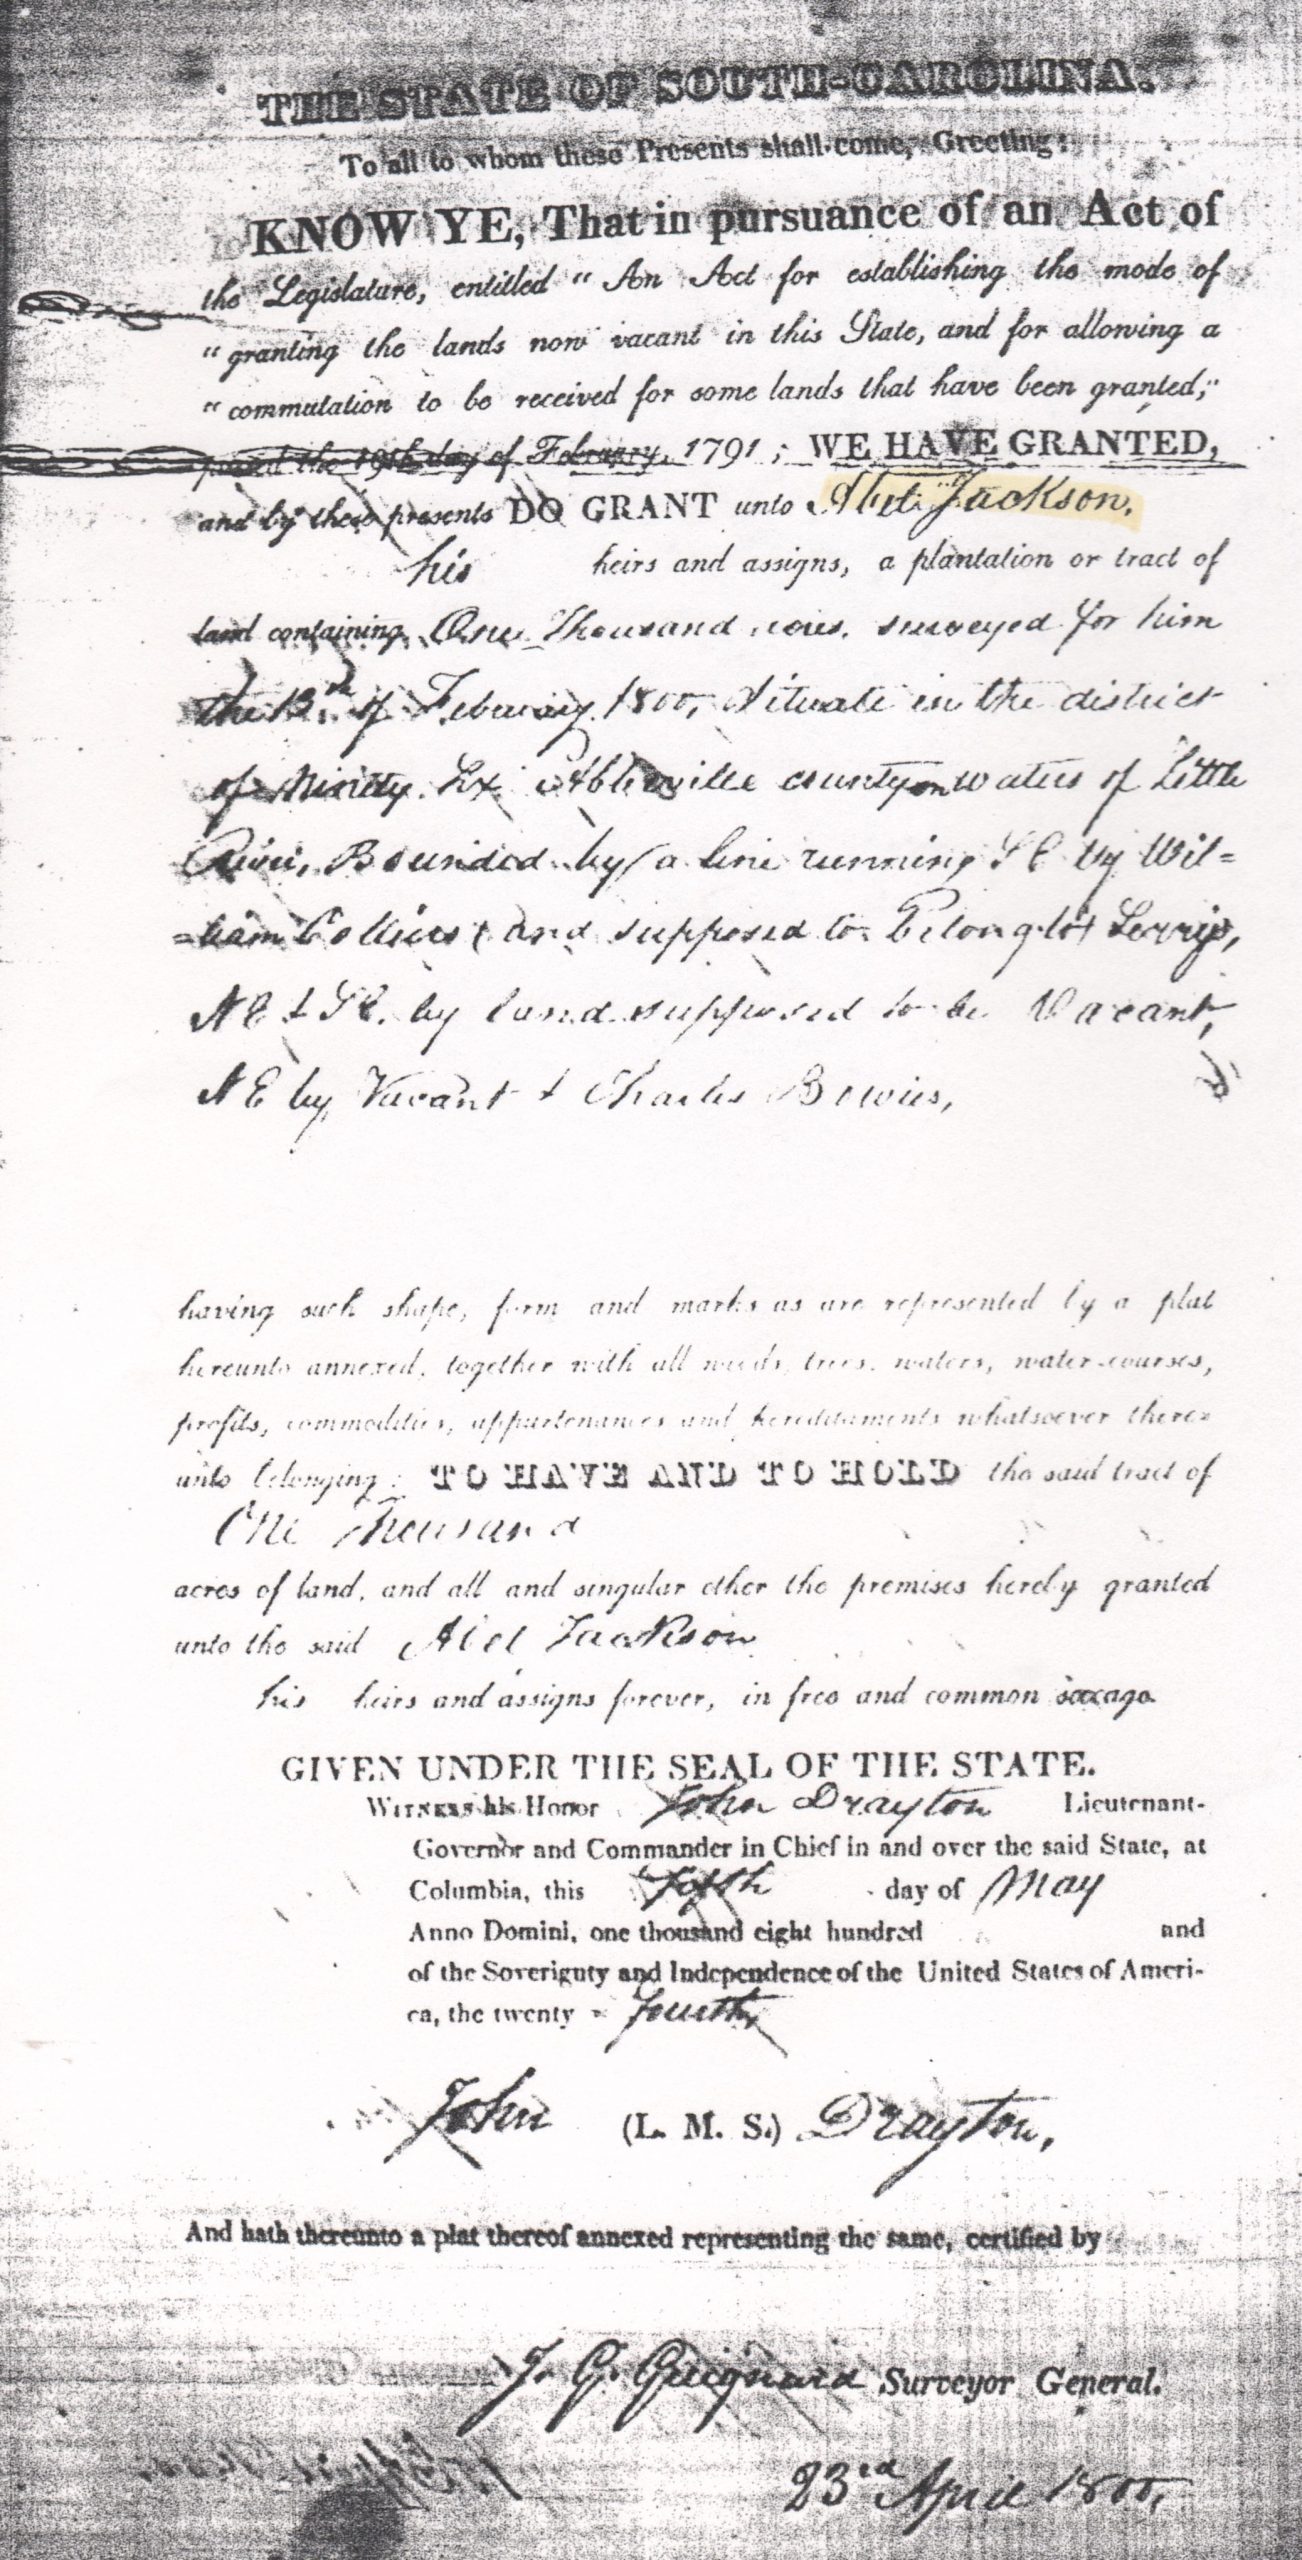 THE STATE OF SOUTH-CAROLINA.
To all to whom these Presents shall come, Greeting:
KNOW YE, That in pursuance of an Act of
the Legislature, entitled "An Act for establishing the mode of
"granting the lands now vacant in this State, and for allowing a
"commutation to be received for some lands that have been granted,"
passed the 19th day of February, 1791; WE HAVE GRANTED,
and by these presents DO GRANT unto Abel Jackson,
his heirs and assigns, a plantation or tract of
land containing One Thousand acres, surveyed for him
the 12th of February 1800, Situate in the district
of Ninety Six Abbeville county on waters of Little
River, Bounded by a line running SE by Wil=
=liam Collins & and supposed to Belong to
NE & SE. by land supposed to be Vacant,
NE by Vacant & Charles Bowies,
having such shape, form and marks as are represented by a plat
hereunto annexed, together with all woods, trees, waters, water-courses,
profits, commodities, appurtenances and hereditaments whatsoever there-
unto belonging: TO HAVE AND TO HOLD the said tract of
One Thousand
acres of land, and all and singular other the premises hereby granted
unto the said Abel Jackson
his heirs and assigns forever, in free and common soccage.
GIVEN UNDER THE SEAL OF THE STATE.
WITNESS his Honor John Drayton Lieutenant-
Governor and Commander in Chief in and over the said State, at
Columbia, this Fifth day of May
Anno Domini, one thousand eight hundred and
of the Soveriguty and Independence of the United States of Ameri-
ca, the twenty - Fourth,
John (L. M. S.) Drayton,
And hath thereunto a plat thereof annexed representing the same, certified by
J. G. Guignard Surveyor General.
23rd April 1800,